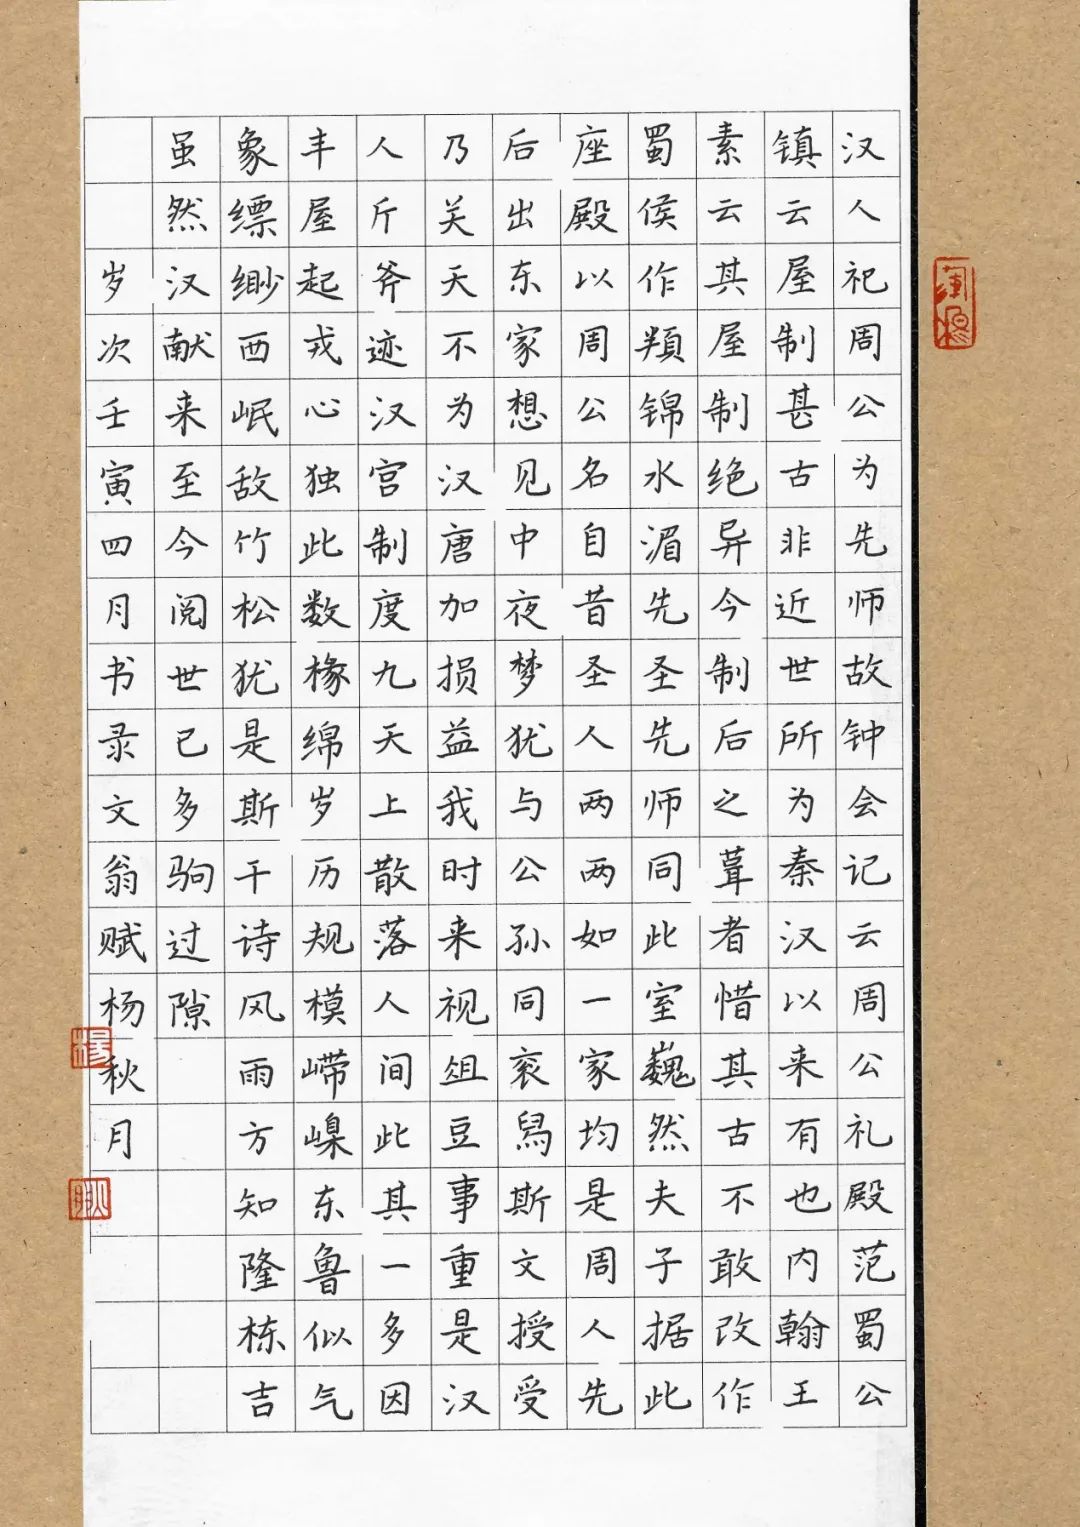 汉人祀周公为先师故钟会记云周公礼殿范蜀公
镇云屋制甚古非近世所为秦汉以来有也内翰王
素云其屋制绝异今制后之葺者惜其古不敢改作
蜀侯作頖锦水湄先圣先师同此室巍然夫子据此
座殿以周公名自昔圣人两两如一家均是周人先
后出东家想见中夜梦犹与公孙同衮舄斯文授受
乃关天不为汉唐加损益我时来视俎豆事重是汉
人斤斧迹汉宫制度九天上散落人间此其一多因
丰屋起戎心独此数椽绵岁历规模崂嵲东鲁似气
象缥缈西岷敌竹松犹是斯干诗风雨方知隆栋吉
虽然汉献来至今阅世已多驹过隙
岁次壬寅四月书录文翁赋杨秋月
杨